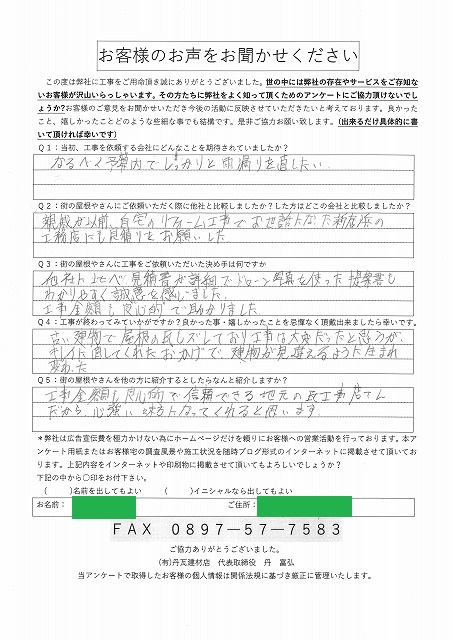 お客様のお声をお聞かせください
この度は弊社に工事をご用命頂き誠にありがとうございました。世の中には弊社の存在やサービスをご存知な
いお客様が沢山いらっしゃいます。その方たちに弊社をよく知って頂くためのアンケートにご協力頂けないでし
ょうか?お客様のご意見をお聞かせいただき今後の活動に反映させていただきたいと考えております。良かった
こと、嬉しかったことどのような些細な事でも結構です。是非ご協力お願い致します。(出来るだけ具体的に書
いて頂ければ幸いです)
Q1:当初、工事を依頼する会社にどんなことを期待されていましたか?
なるべく予算内でしっかりと雨漏りを直したい
Q2:街の屋根やさんにご依頼いただく際に他社と比較しましたか?した方はどこの会社と比較しましたか?
親戚が以前、自宅のリフォーム工事でお世話になった新居浜の
工務店にも見積りをお願いした
Q3:街の屋根やさんに工事をご依頼いただいた決め手は何ですか
他社と比べ見積書が詳細でドローン写真を使った提案書も
わかりやすく誠意を感じました。
工事金額も良心的で助かりました
Q4:工事が終わってみていかがですか?良かった事・嬉しかったことを忌憚なく頂戴出来ましたら幸いです。
古い建物で屋根の瓦もズレており工事は大変だったと思うが、
キレイに直してくれたおかげで、建物が見違えるように生まれ
変わった
Q5:街の屋根やさんを他の方に紹介するとしたらなんと紹介しますか?
工事金額も良心的で信頼できる地元の瓦工事店さん
だから、心強い味方になってくれると思います。
*弊社は広告宣伝費を極力かけない為にホームページだけを頼りにお客様への営業活動を行っております。本ア
ンケート用紙またはお客様宅の調査風景や施工状況を随時ブログ形式のインターネットに掲載させて頂いてお
ります。上記内容をインターネットや印刷物に掲載させて頂いてもよろしいでしょうか?
下記の中から〇印をお付下さい。
( )名前を出してもよい ( )イニシャルなら出してもよい
お名前: ご住所:
FAX 0897-57-7583
ご協力ありがとうございました。
(有)丹瓦建材店 代表取締役 丹 富弘
当アンケートで取得したお客様の個人情報は関係法規に基づき厳正に管理いたします。